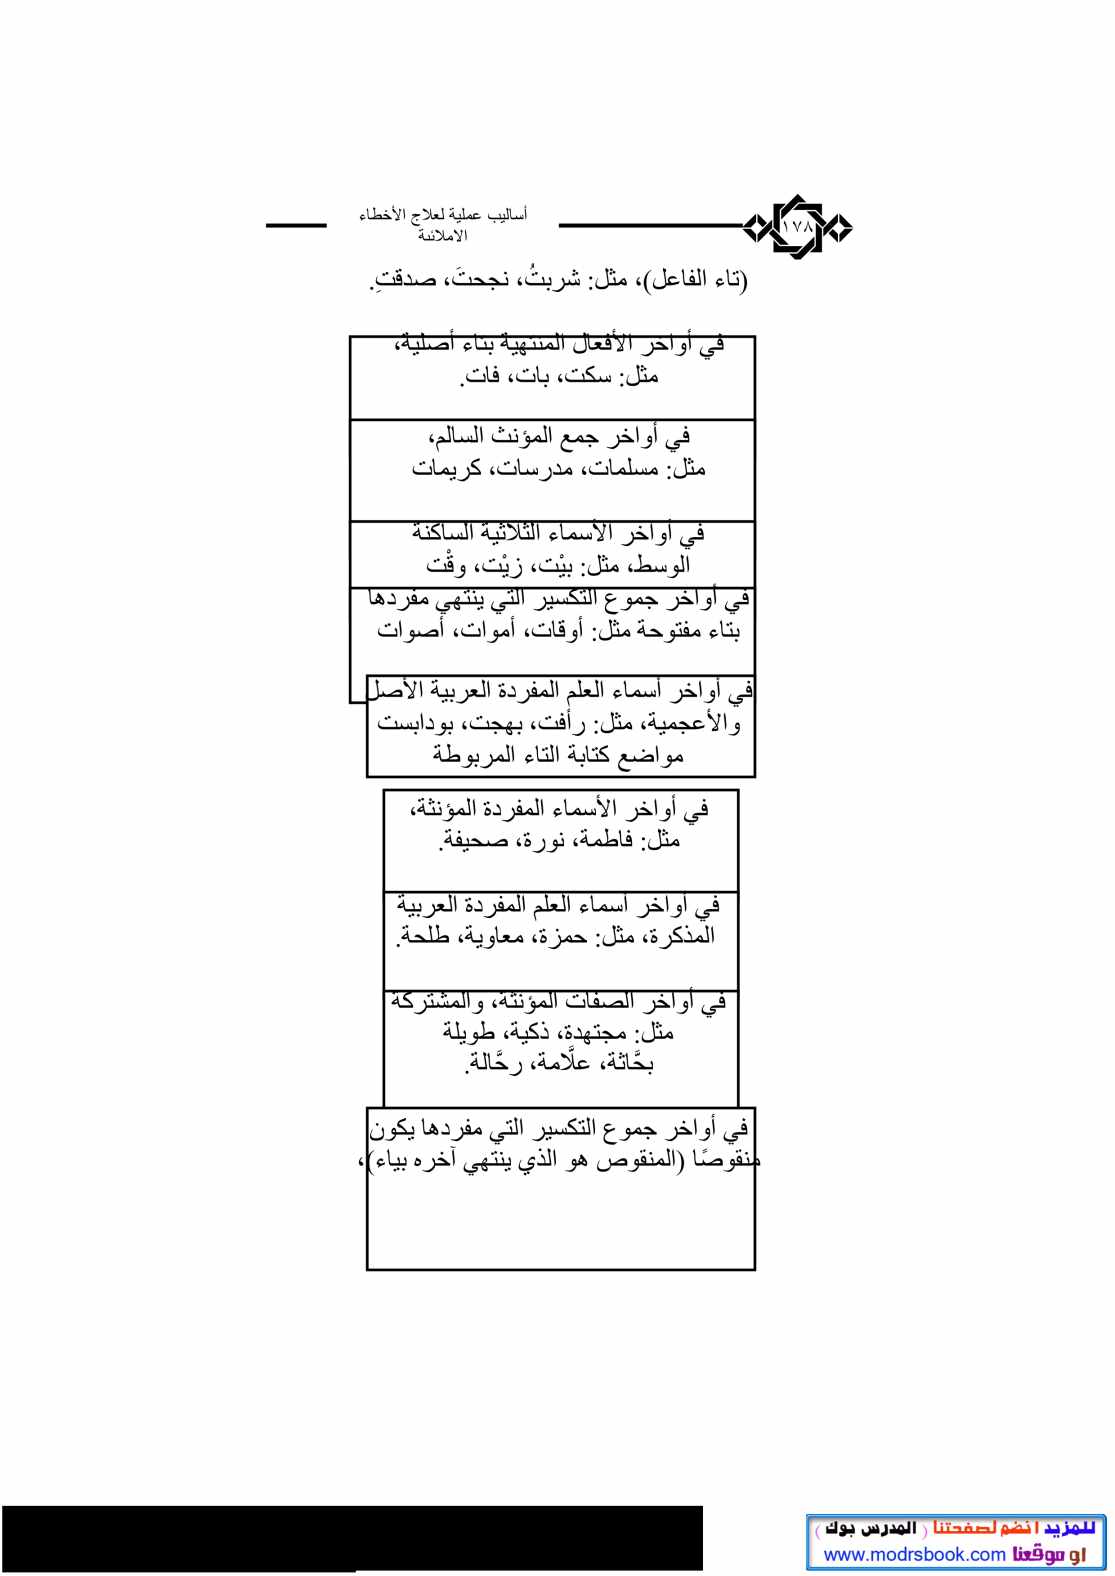 أساليب عملية لعلاج الأخطاء
الاملائية
١٧٨
(تاء الفاعل)، مثل: شربتُ، نجحتَ، صدقتِ.
في أواخر الأفعال المنتهية بتاء أصلية،
مثل: سكت، بات، فات.
في أواخر جمع المؤنث السالم،
مثل: مسلمات، مدرسات، كريمات
في أواخر الأسماء الثلاثية الساكنة
الوسط، مثل: بيْت، زيْت، وقْت
في أواخر جموع التكسير التي ينتهي مفردها
بتاء مفتوحة مثل: أوقات، أموات، أصوات
في أواخر أسماء العلم المفردة العربية الأصل
والأعجمية، مثل: رأفت، بهجت، بودابست
مواضع كتابة التاء المربوطة
في أواخر الأسماء المفردة المؤنثة،
مثل: فاطمة، نورة، صحيفة.
في أواخر أسماء العلم المفردة العربية
المذكرة، مثل: حمزة، معاوية، طلحة.
في أواخر الصفات المؤنثة، والمشتركة
مثل: مجتهدة، ذكية، طويلة
بحَّاثة، علَّامة، رحَّالة.
في أواخر جموع التكسير التي مفردها يكون
منقوصًا (المنقوص هو الذي ينتهي آخره بياء)،
للمزيد انضم لصفحتنا ( المدرس بوك )
او موقعنا www.modrsbook.com